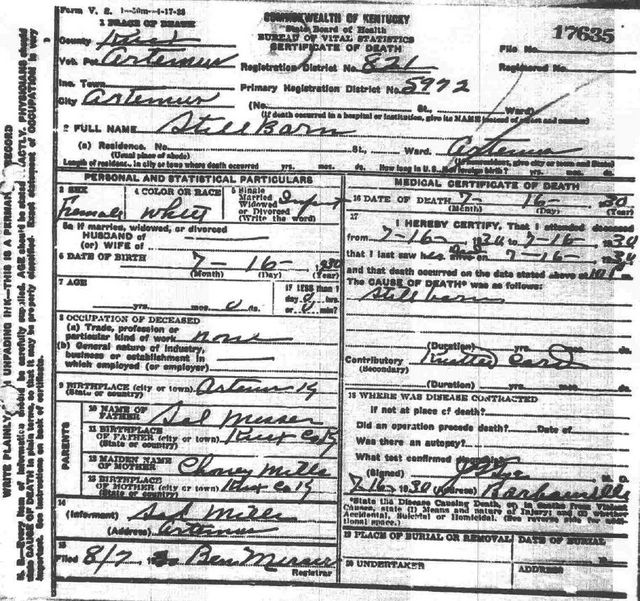 Form V. S. 1-50m-4-17-28
COMMONWEALTH OF KENTUCKY
State Board of Health
BUREAU OF VITAL STATISTICS
CERTIFICATE OF DEATH
1 PLACE OF DEATH
County Knox
File No. 17635
Vot. Pct. Artemus
Registration District No. 821
Registered No.
Inc. Town
Primary Registration District No. 5972
City Artemus
(No. St., Ward)
(If death occurred in a hospital or institution, give its NAME instead of street and number)
2 FULL NAME Still Barn
(a) Residence. No. St., Ward. Artemus
(Usual place of abode) (If nonresident, give city or town and State)
Length of residence in city or town where death occurred yrs. mos. ds. How long in U. S., if of foreign birth? yrs. mos. ds.
PERSONAL AND STATISTICAL PARTICULARS
3 SEX
Freemale
4 COLOR OR RACE
Whitt
5 Single
Married
Widowed
or Divorced
(Write the word)
5a If married, widowed, or divorced
HUSBAND of
(or) WIFE of
6 DATE OF BIRTH 7-16- 1930
(Month) (Day) (Year)
7 AGE
yrs. mos. 0 ds.
IF LESS than 1
day 0 hrs.
or 0 min?
8 OCCUPATION OF DECEASED
(a) Trade, profession or
particular kind of work none
(b) General nature of industry,
business or establishment in
which employed (or employer)
9 BIRTHPLACE (city or town) Artemus Ky
(State or country)
PARENTS
10 NAME OF
FATHER Sol Messer
11 BIRTHPLACE
OF FATHER (city or town) Knox Co Ky
(State or country)
12 MAIDEN NAME
OF MOTHER Mills
13 BIRTHPLACE
OF MOTHER (city or town) Knox Co Ky
(State or country)
14
(Informant) Sol Mills
(Address) Artemus
15
Filed 8/7 1930 Ben Messer
Registrar
MEDICAL CERTIFICATE OF DEATH
16 DATE OF DEATH 7- 16- 30
(Month) (Day) (Year)
17
I HEREBY CERTIFY, That I attended deceased
from 7-16- 1930 to 7-16- 1930
that I last saw alive on 7-16- 1930
and that death occurred on the date stated above at
The CAUSE OF DEATH* was as follows:
Still barn
(Duration) yrs. mos. ds.
Contributory Knotted Card
(Secondary)
(Duration) yrs. mos. ds.
18 WHERE WAS DISEASE CONTRACTED
If not at place of death?
Did an operation precede death? Date of
Was there an autopsy?
What test confirmed diagnosis?
(Signed) M. D.
7-16- 1930 (Address) Barbourville
*State the Disease Causing Death, or, in deaths from Violent
Causes, state (1) Means and nature of Injury; and (2) whether
Accidental, Suicidal or Homicidal. (See reverse side for addi-
tional space.)
19 PLACE OF BURIAL OR REMOVAL DATE OF BURIAL
20 UNDERTAKER ADDRESS
WRITE PLAINLY UNFADING INK—THIS IS A PERMANENT RECORD